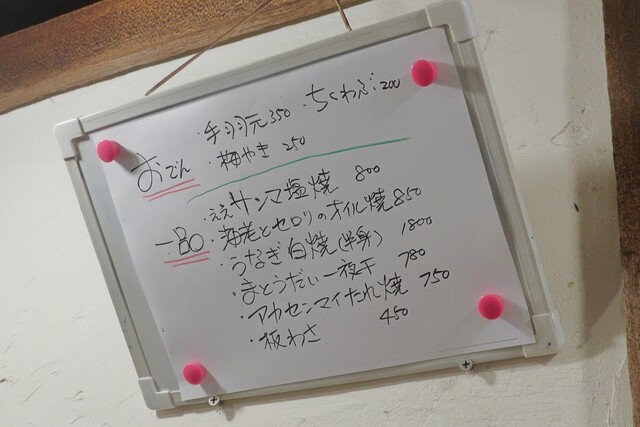 おでん
・手羽元 350 ・ちくわぶ 200
・梅やき 250
一品
サンマ塩焼 800
・海老とセロリのオイル焼 850
・うなぎ白焼(半身) 1800
・まとうだい一夜干 780
・アカセンマイたれ焼 750
・板わさ 450